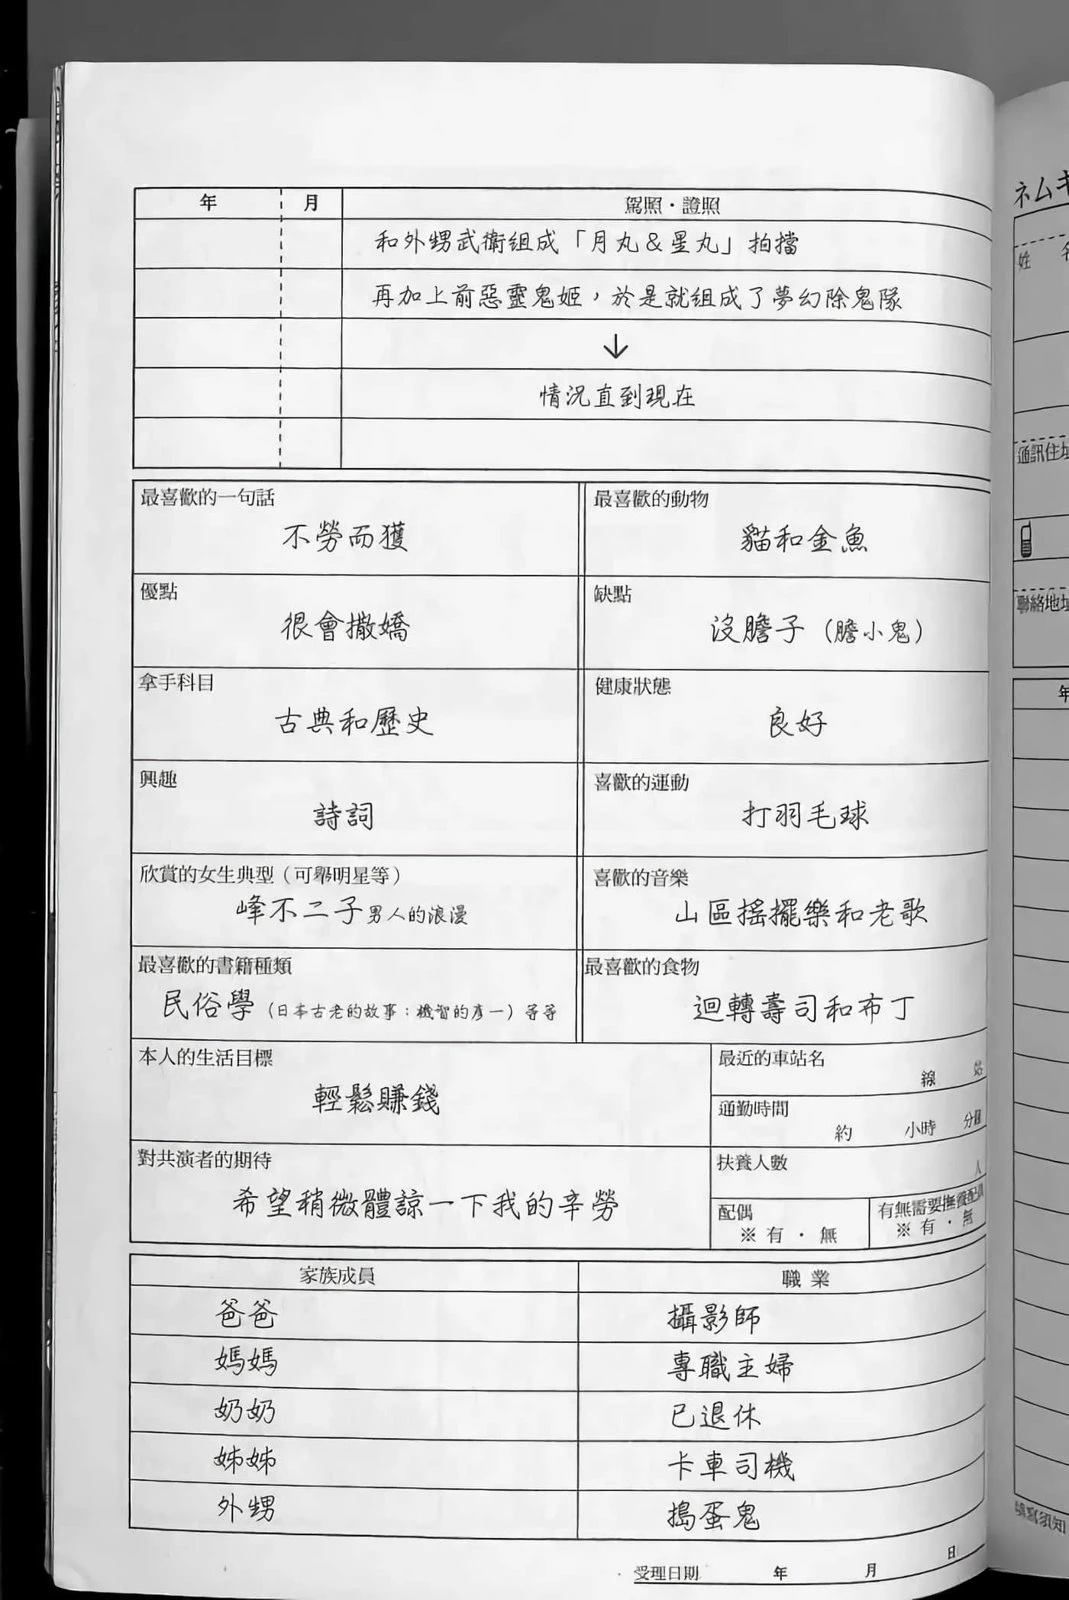 年 月 駕照・證照
和外甥武衛組成「月丸&星丸」拍擋
再加上前惡靈鬼姬，於是就組成了夢幻除鬼隊
↓
情況直到現在
最喜歡的一句話
不勞而獲
最喜歡的動物
貓和金魚
優點
很會撒嬌
缺點
沒膽子（膽小鬼）
拿手科目
古典和歷史
健康狀態
良好
興趣
詩詞
喜歡的運動
打羽毛球
欣賞的女生典型（可舉明星等）
峰不二子男人的浪漫
喜歡的音樂
山區搖擺樂和老歌
最喜歡的書籍種類
民俗學（日本古老的故事：機智的彥一）等等
最喜歡的食物
迴轉壽司和布丁
本人的生活目標
輕鬆賺錢
最近的車站名
線 站
通勤時間
約 小時 分鐘
對共演者的期待
希望稍微體諒一下我的辛勞
扶養人數
人
配偶
※有・無
有無需要撫養配偶
※有・無
家族成員 職業
爸爸 攝影師
媽媽 專職主婦
奶奶 已退休
姊姊 卡車司機
外甥 搗蛋鬼
受理日期 年 月 日
ネムキ
姓 名
通訊住址
聯絡地址
年